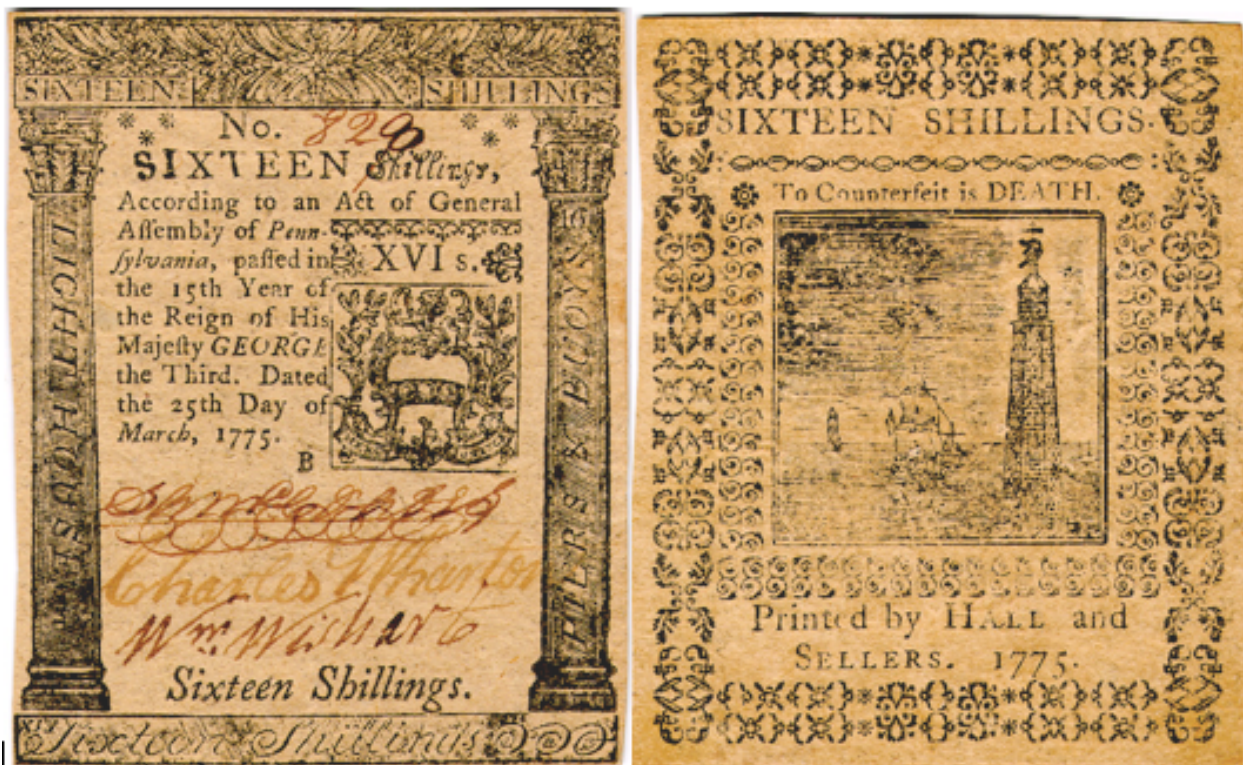 SIXTEEN SHILLINGS
No. 8290
SIXTEEN Shillings,
According to an Act of General
Aſſembly of Penn-
ſylvania, paſſed in
XVI s.
the 15th Year of
the Reign of His
Majeſty GEORGE
the Third. Dated
the 25th Day of
March, 1775.
B
Charles Wharton
Wm. Wishart
Sixteen Shillings.
Sixteen Shillings
LIGHT HOUSE
16
PIERS & BUOYS
SIXTEEN SHILLINGS.
To Counterfeit is DEATH.
Printed by HALL and
SELLERS. 1775.